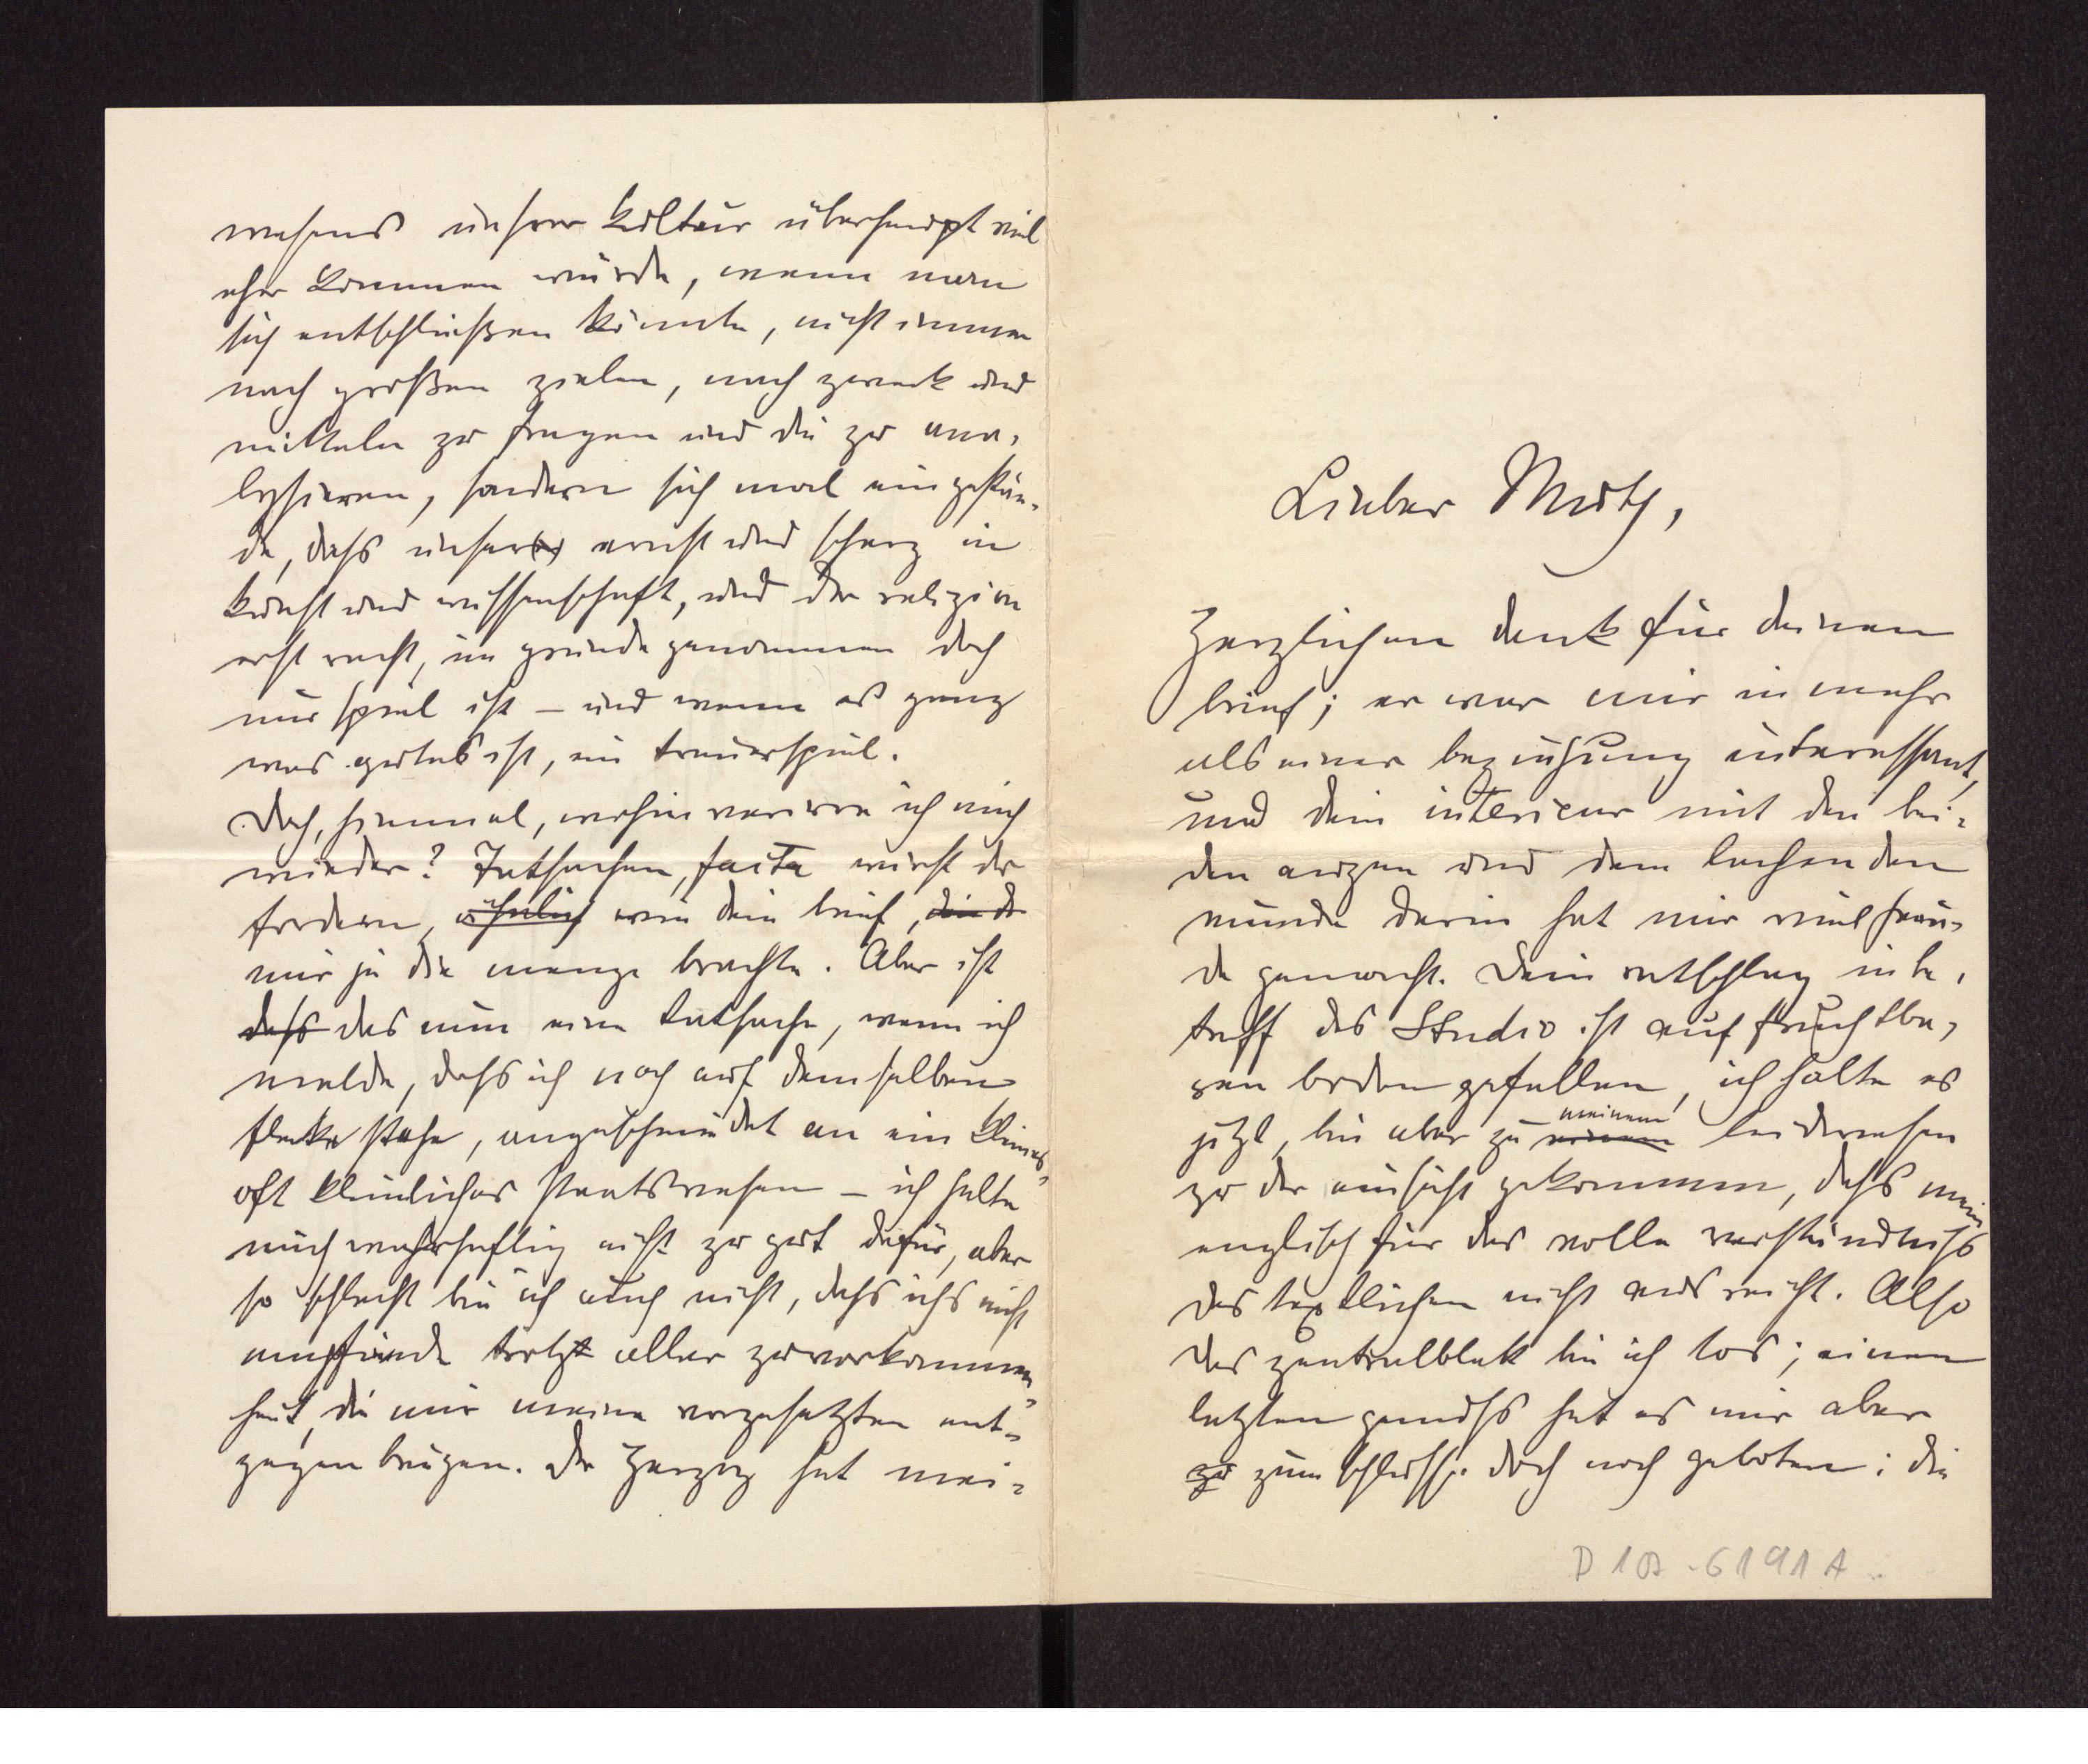 wesens unsrer kultur überhaupt viel
eher kommen würde, wenn man
sich entschließen könnte, nicht immer
nach großen zielen, nach zweck und
mitteln zu fragen und die zu ana-
lysieren, sondern sich mal eingestän-
de, dass unser ernst und scherz in
kunst und wissenschaft, und der religion
erst recht, im grunde genommen doch
nur spiel ist – und wenn es ganz
was gutes ist, ein trauerspiel.
Doch, himmel, wohin verirre ich mich
wieder? Tatsachen, facta wirst du
fordern, ähnlich wie dein brief, die du
mir ja die menge brachte. Aber ist
dass das nun eine tatsache, wenn ich
melde, dass ich noch auf demselben
flecke stehe, angeschmiedet an ein kleines,
oft kleinliches staatswesen – ich halte
mich wahrhaftig nicht zu gut dafür, aber
so schlecht bin ich auch nicht, dass ichs nicht
empfinde trotz aller zuvorkommen-
heit, die mir meine vorgesetzten ent-
gegen bringen. Der Herzog hat mei-
Lieber Mutz,
Herzlichen dank für deinen
brief; er war mir in mehr
als einer beziehung interessant,
und dein interieur mit den bei-
den augen und dem lachenden
munde darin hat mir viel freu-
de gemacht. Dein ratschlag in be-
treff des Studio ist auf fruchtba-
ren boden gefallen, ich halte es
jetzt, bin aber zu meinem leidwesen
zu der einsicht gekommen, dass mein
englisch für das volle verständniss
des textlichen nicht ausreicht. Also
das zentralblatt bin ich los; einen
letzten genuss hat es mir aber
zu zum schlusse doch noch geboten: die
D 10 -6191 A